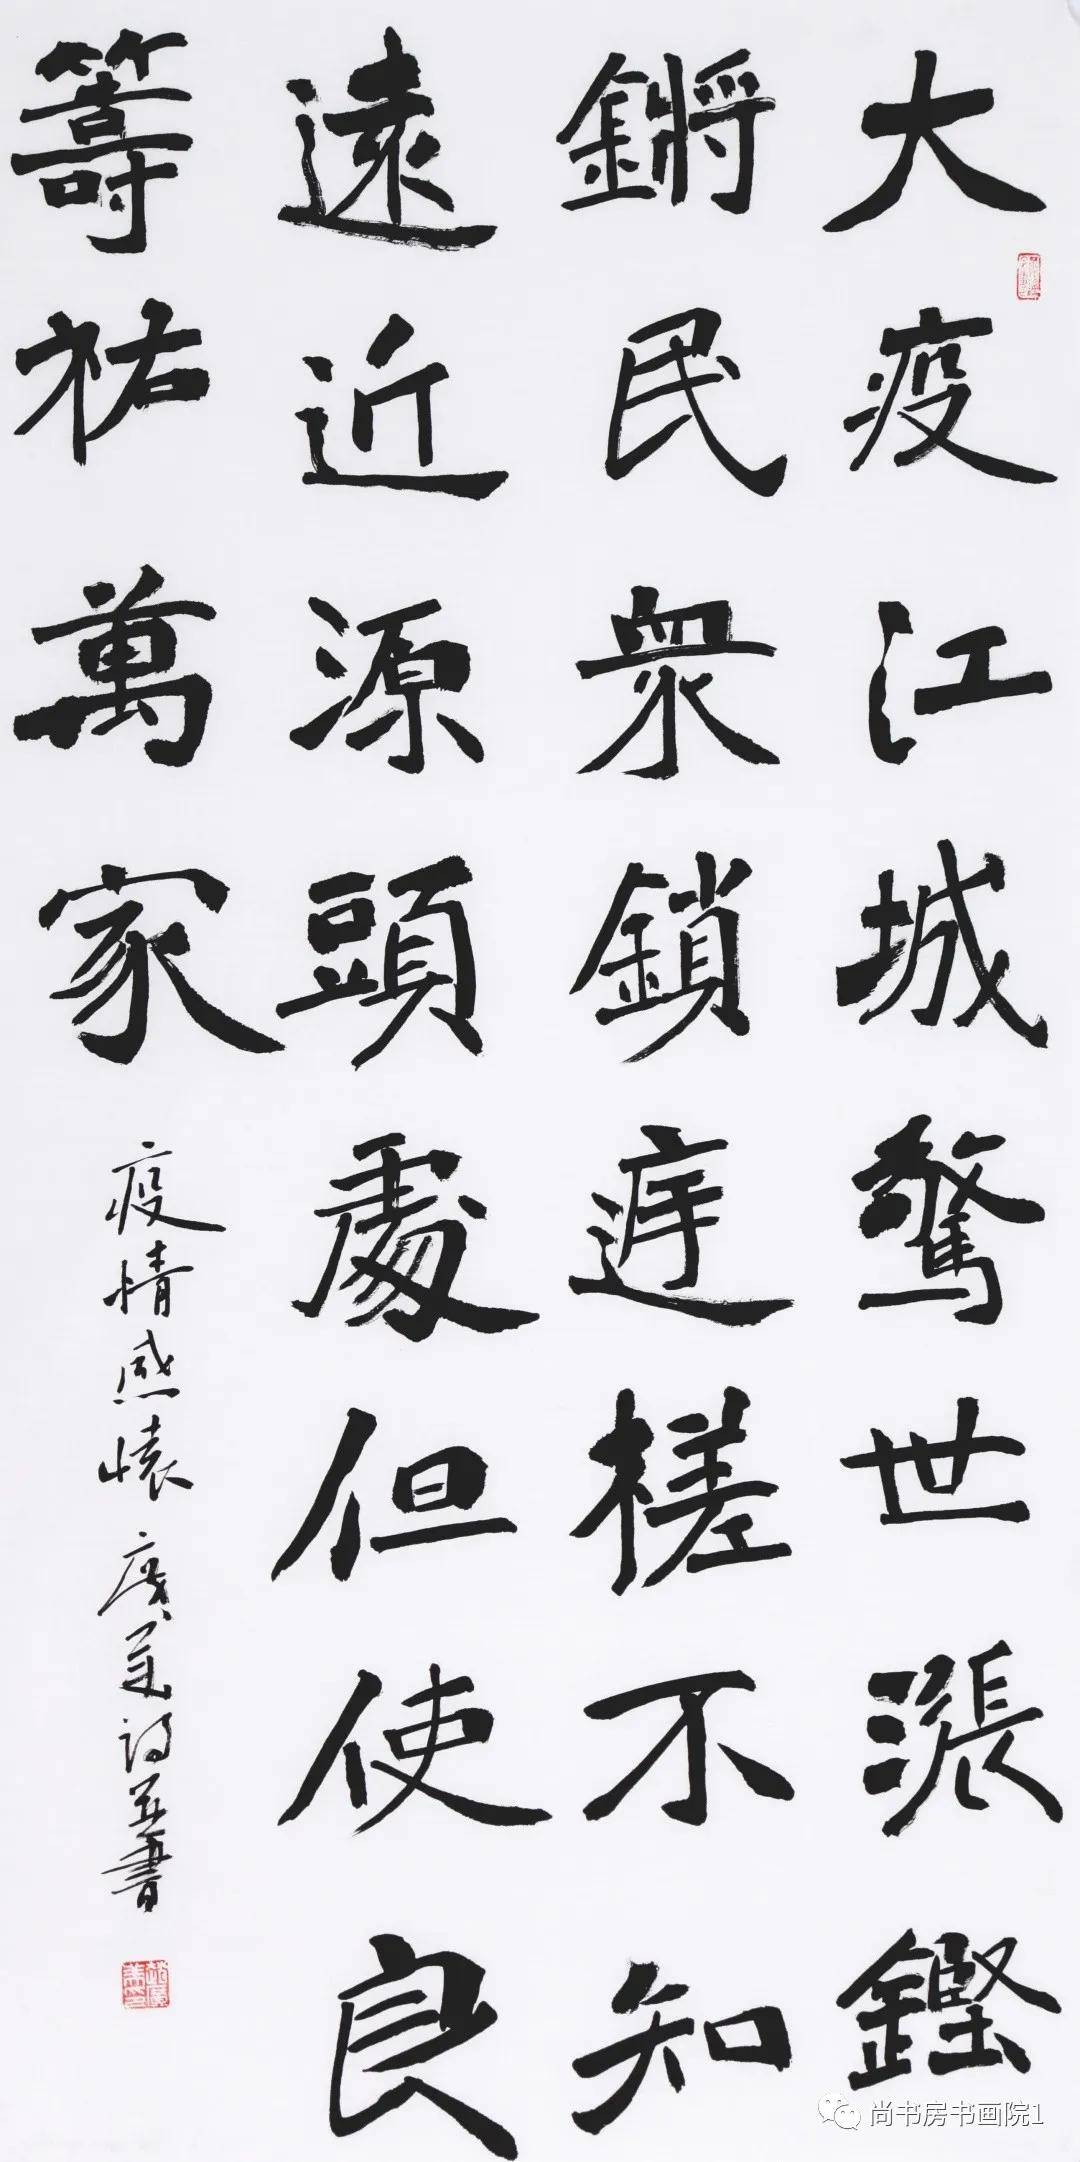 大疫江城驚世漲鏗
鏘民衆鎖槎不知
遠近源頭處但使良
籌祐萬家
疫情感懷 廣美詩並書
尚书房书画院1